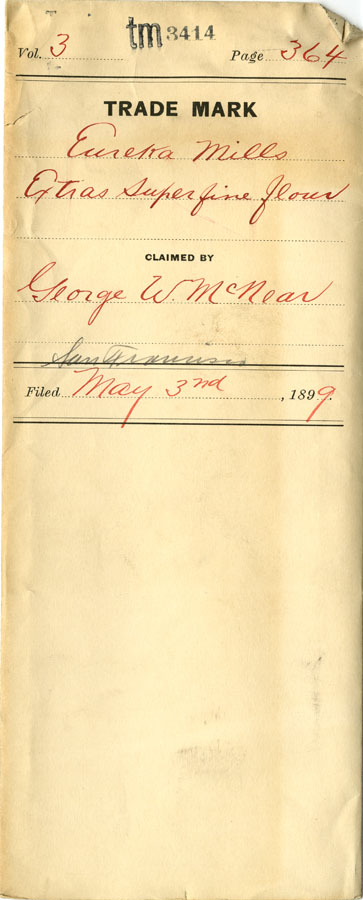 Vol. 3 tm 3414 Page 364
TRADE MARK
Eureka Mills
Extras Superfine flour
CLAIMED BY
George W. McNear
San Francisco
Filed May 3nd, 1899.